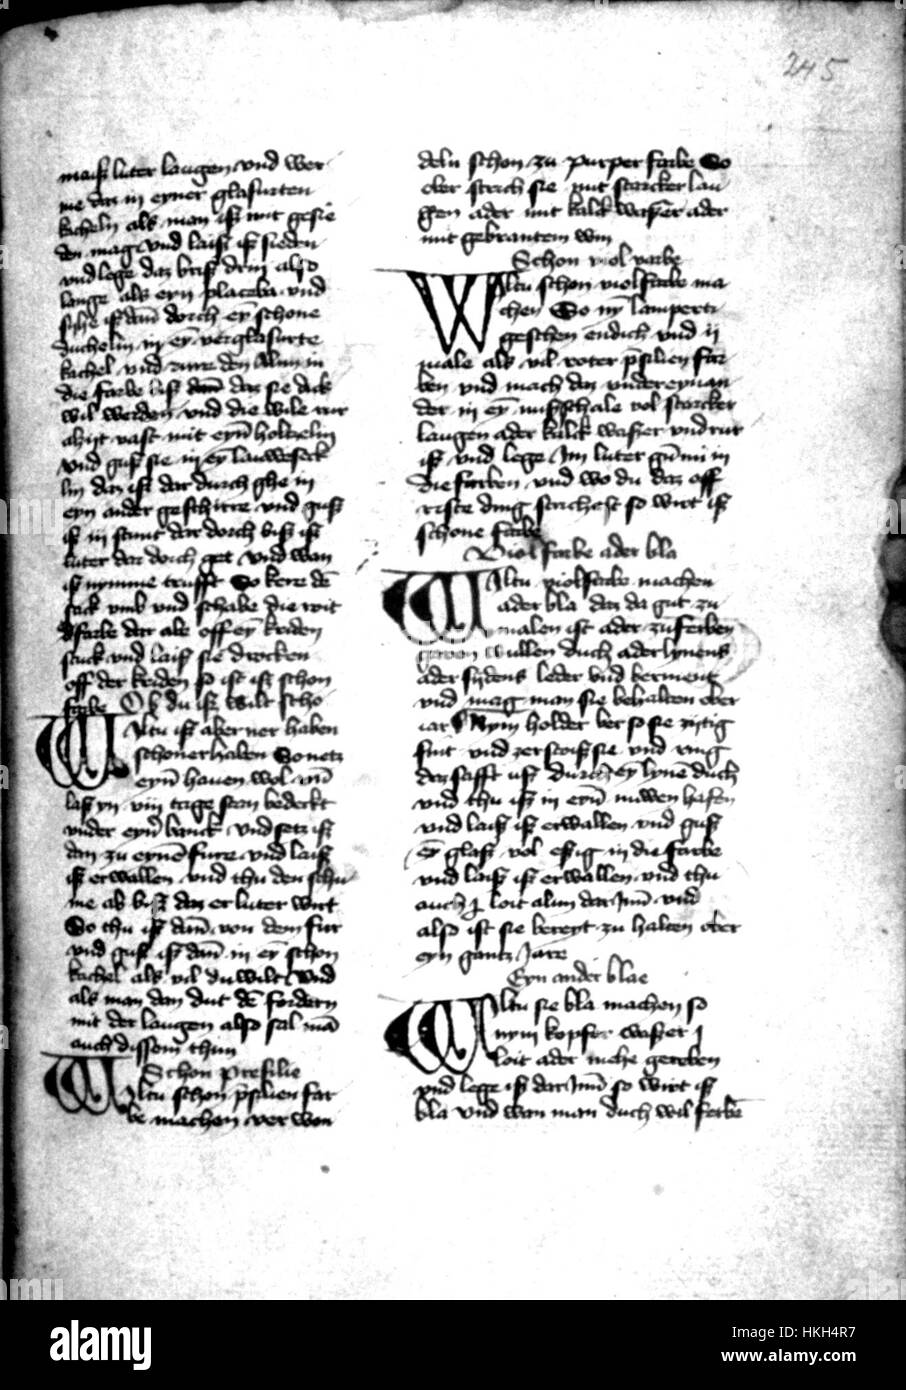 245
maiß luter laugen vnd wer
me daz in eyner glasurten
kacheln als man iß mit gesie
den mag vnd laiß iß sieden
vnd lege daz briß drin also
lange als eyn placzba vnd
syhe iß dan dorch ey schone
duchelin in ey verglasurte
kachel vnd rure den alun in
die farbe biß daz sie dick
wil werden vnd die wile rur
vast mit eyn holczelin
vnd guß sie in ey lauweseck
lin daz iß dar durch ghe in
eyn ander geschirre vnd guß
iß in stunt dar dorch biß iß
luter dar dorch get vnd wan
iß nymme trufft So kere de
sack vmb vnd schabe die wit
farbe dar abe off ey kriden
stuck vnd laiß sie drocken
off der kriden so ist iß schon
farbe Ob du iß wilt scho
Wiltu iß aber ner haben
schoner haben So netz
eyn hauen wol vn
laß yn vm tage stan bedeckt
vnder eyn banck vnd setz iß
dan zu eyne fure vnd laiß
iß erwallen vnd thu den schu
me ab biß daz er luter wirt
So thu iß dan von dem fur
vnd guß iß dan in ey schon
kachel als vil du wilt vnd
als man dem dut de fordern
mit der laugen also sal ma
auch dissem thun
Schon presilie
Wiltu schon psilien far
be machen ver won
deln schon zu purper farbe So
ober strich sie mit starcker lau
gen ader mit kalck waßer ader
mit gebrantem win
Schon viol varbe
Wiltu schon violfarbe ma
chen So ny lamperti
geschen endich vnd ij
male als vil roter psilien far
ben vnd mach daz vndereynan
der in ey nußschale vol starcker
laugen ader kalck waßer vnd rur
iß vnd lege Im luter gumi in
die farben vnd wo du daz off
reste ding strichest so wirt iß
schone farbe
Viol farbe ader bla
Wiltu violfarbe machen
ader bla daz da gut zu
malen ist ader zu ferben
garen wullen duch ader lynens
ader sydens leder vnd berment
vnd mag man sie behalten ober
iar Nym holder ber so sie zytig
sint vnd zerstoiß sie vnd ring
den safft uß durch ey lyne duch
vnd thu iß in eyn nuwen hafen
vnd laiß iß erwallen vnd guß
ey glaß vol essig in die farbe
vnd laiß iß erwallen vnd thu
auch j loit alun dar Inn vnd
also ist sie bereyt zu halten ober
eyn gantz Jare
Eyn ander blae
Wiltu sie bla machen so
nym kopfer waßer j
loit ader mehe gereben
vnd lege iß dar Inn so wirt iß
bla vnd wan man duch wil ferbe
alamy
Image ID: HKH4R7
www.alamy.com